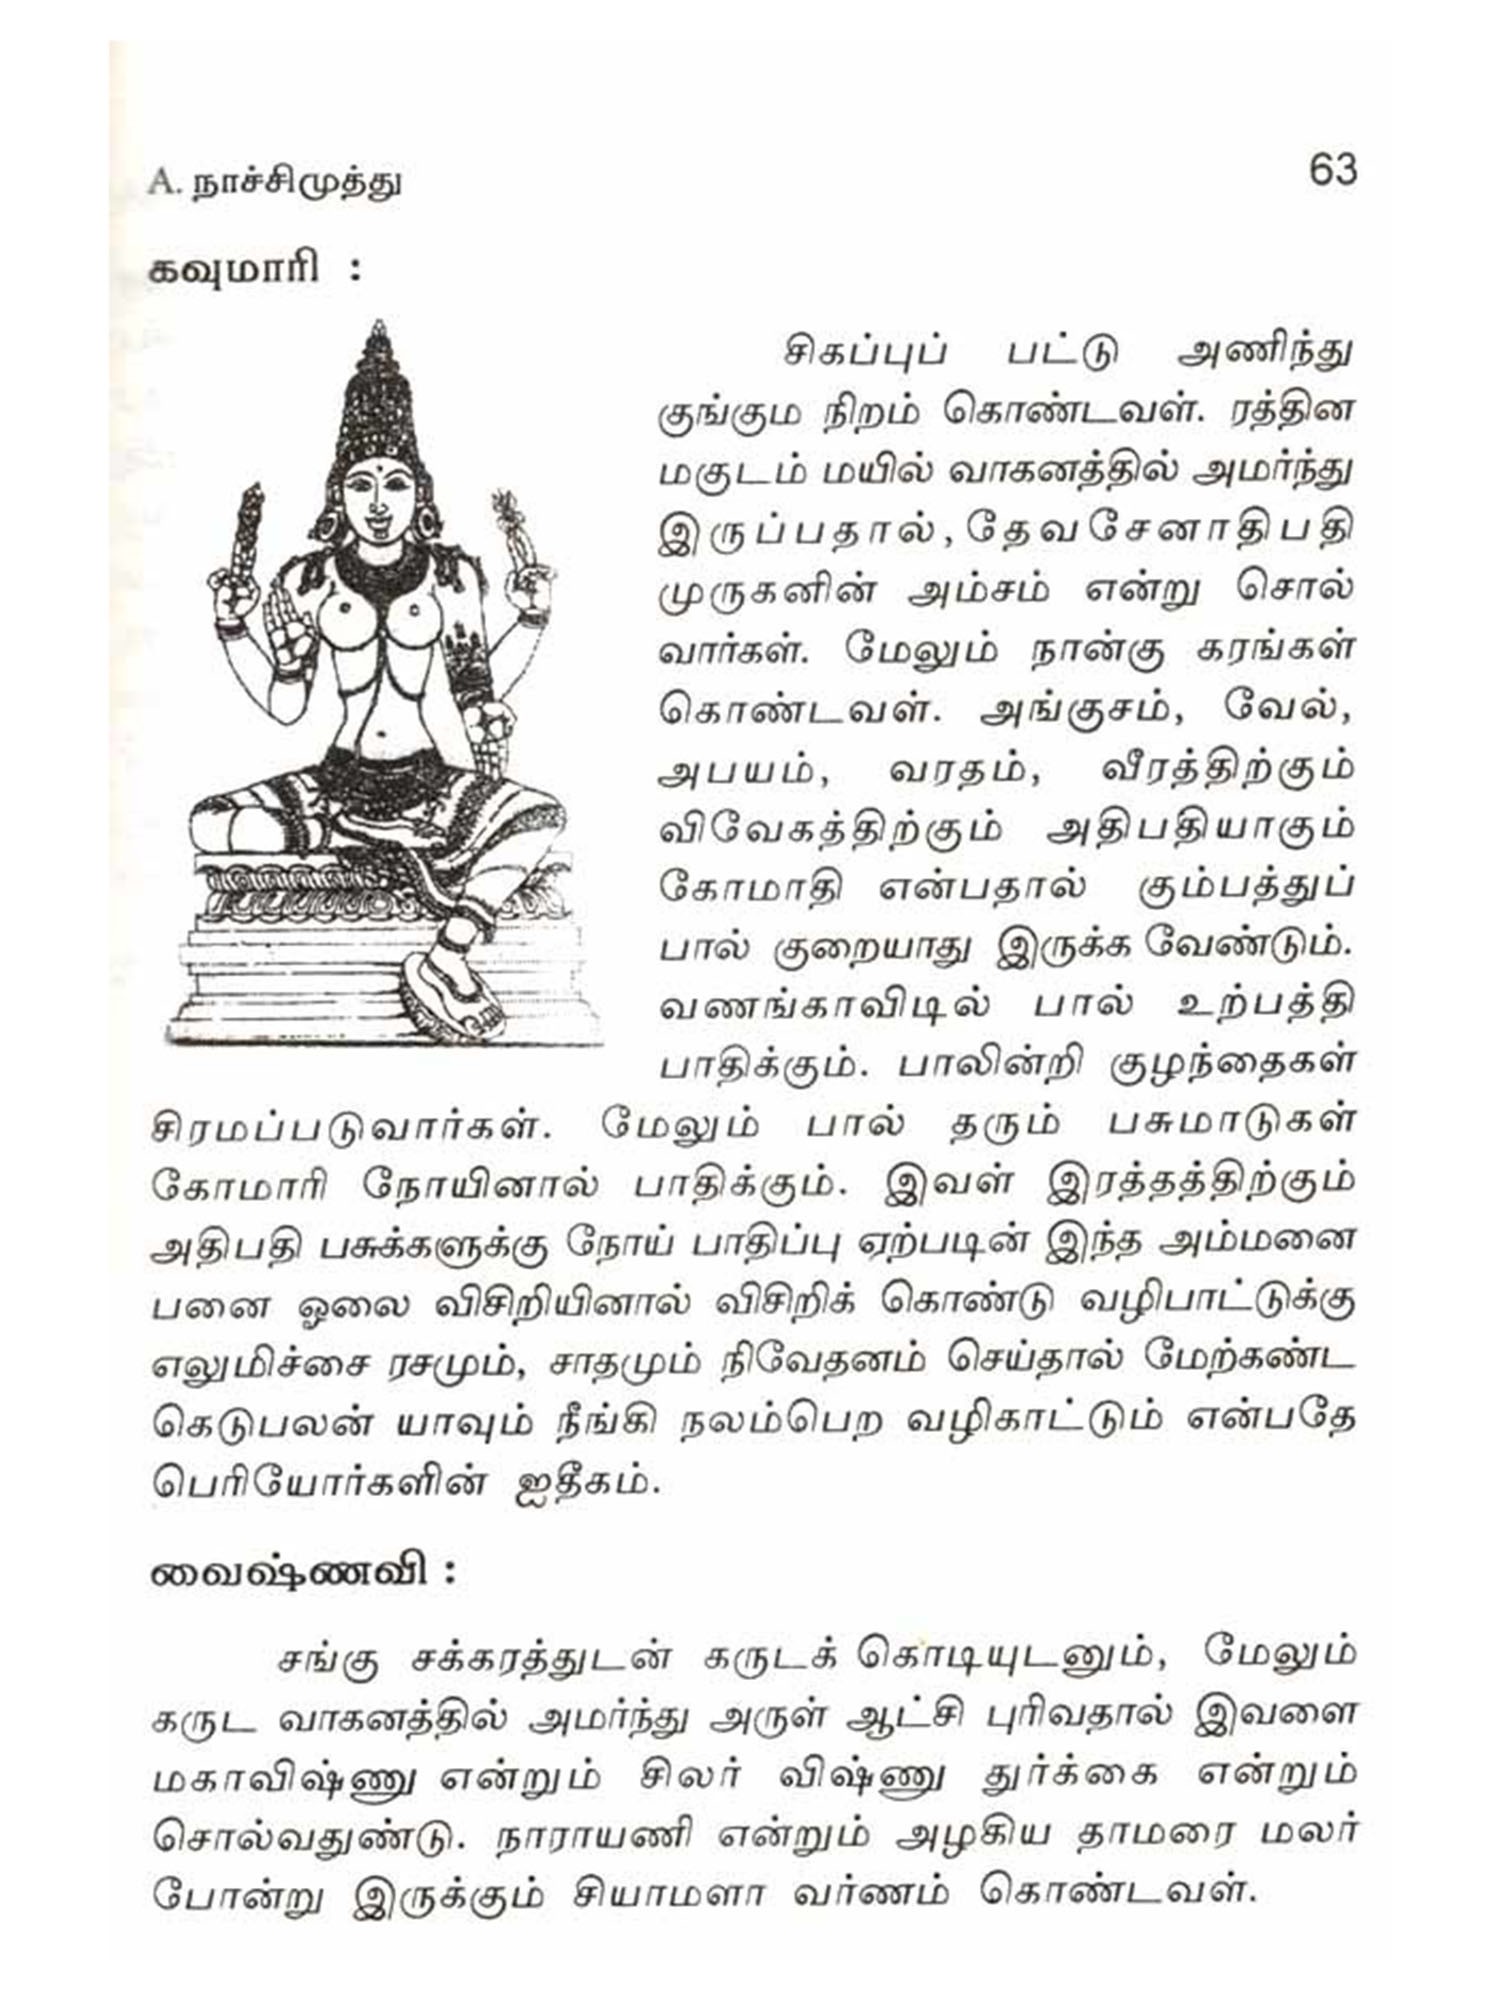 A. நாச்சிமுத்து 63
கவுமாரி :
சிகப்புப் பட்டு அணிந்து
குங்கும நிறம் கொண்டவள். ரத்தின
மகுடம் மயில் வாகனத்தில் அமர்ந்து
இருப்பதால், தேவசேனாதிபதி
முருகனின் அம்சம் என்று சொல்
வார்கள். மேலும் நான்கு கரங்கள்
கொண்டவள். அங்குசம், வேல்,
அபயம், வரதம், வீரத்திற்கும்
விவேகத்திற்கும் அதிபதியாகும்
கோமாதி என்பதால் கும்பத்துப்
பால் குறையாது இருக்க வேண்டும்.
வணங்காவிடில் பால் உற்பத்தி
பாதிக்கும். பாலின்றி குழந்தைகள்
சிரமப்படுவார்கள். மேலும் பால் தரும் பசுமாடுகள்
கோமாரி நோயினால் பாதிக்கும். இவள் இரத்தத்திற்கும்
அதிபதி பசுக்களுக்கு நோய் பாதிப்பு ஏற்படின் இந்த அம்மனை
பனை ஓலை விசிறியினால் விசிறிக் கொண்டு வழிபாட்டுக்கு
எலுமிச்சை ரசமும், சாதமும் நிவேதனம் செய்தால் மேற்கண்ட
கெடுபலன் யாவும் நீங்கி நலம்பெற வழிகாட்டும் என்பதே
பெரியோர்களின் ஐதீகம்.
வைஷ்ணவி :
சங்கு சக்கரத்துடன் கருடக் கொடியுடனும், மேலும்
கருட வாகனத்தில் அமர்ந்து அருள் ஆட்சி புரிவதால் இவளை
மகாவிஷ்ணு என்றும் சிலர் விஷ்ணு துர்க்கை என்றும்
சொல்வதுண்டு. நாராயணி என்றும் அழகிய தாமரை மலர்
போன்று இருக்கும் சியாமளா வர்ணம் கொண்டவள்.